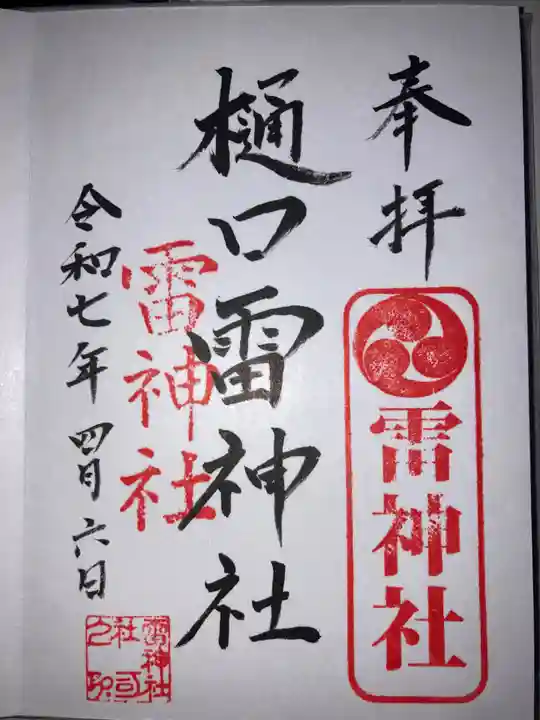 奉拝
雷神社
樋口雷神社
雷神社
令和七年四月六日
雷神社